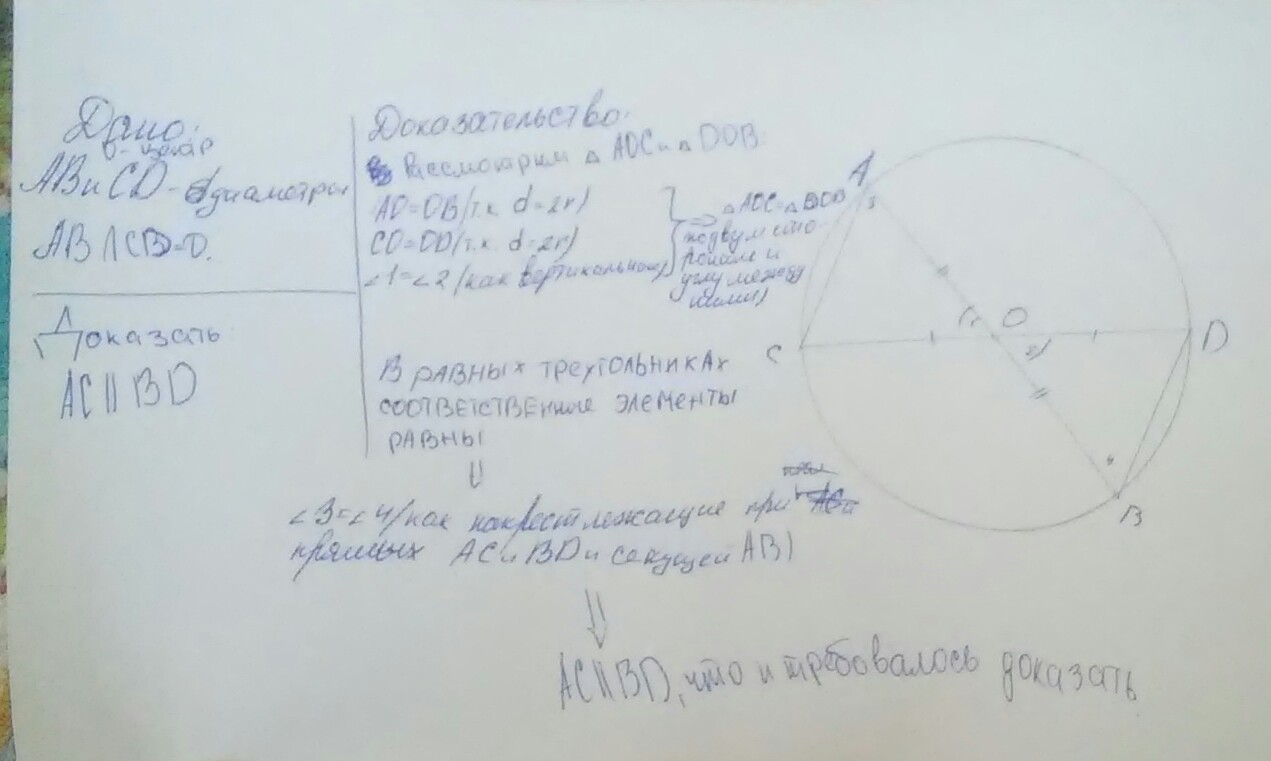 Дано:
О-центр
AB и CD - диаметры
AB ∩ CD=O.
Доказать
AC || BD
Доказательство:
Рассмотрим △ AOC и △ DOB.
AO=OB (т.к. d=2r)
CO=OD (т.к. d=2r)
∠1=∠2 (как вертикальные)
⇒ △ AOC=△ BOD
по двум сто-
ронам и
углу между
ними)
В РАВНЫХ ТРЕУГОЛЬНИКАХ
СООТВЕТСТВЕННЫЕ ЭЛЕМЕНТЫ
РАВНЫ
⇓
∠3=∠4 (как накрест лежащие при
прямых AC и BD и секущей AB)
⇓
AC || BD, что и требовалось доказать
A
3
1
O
2
C
D
B